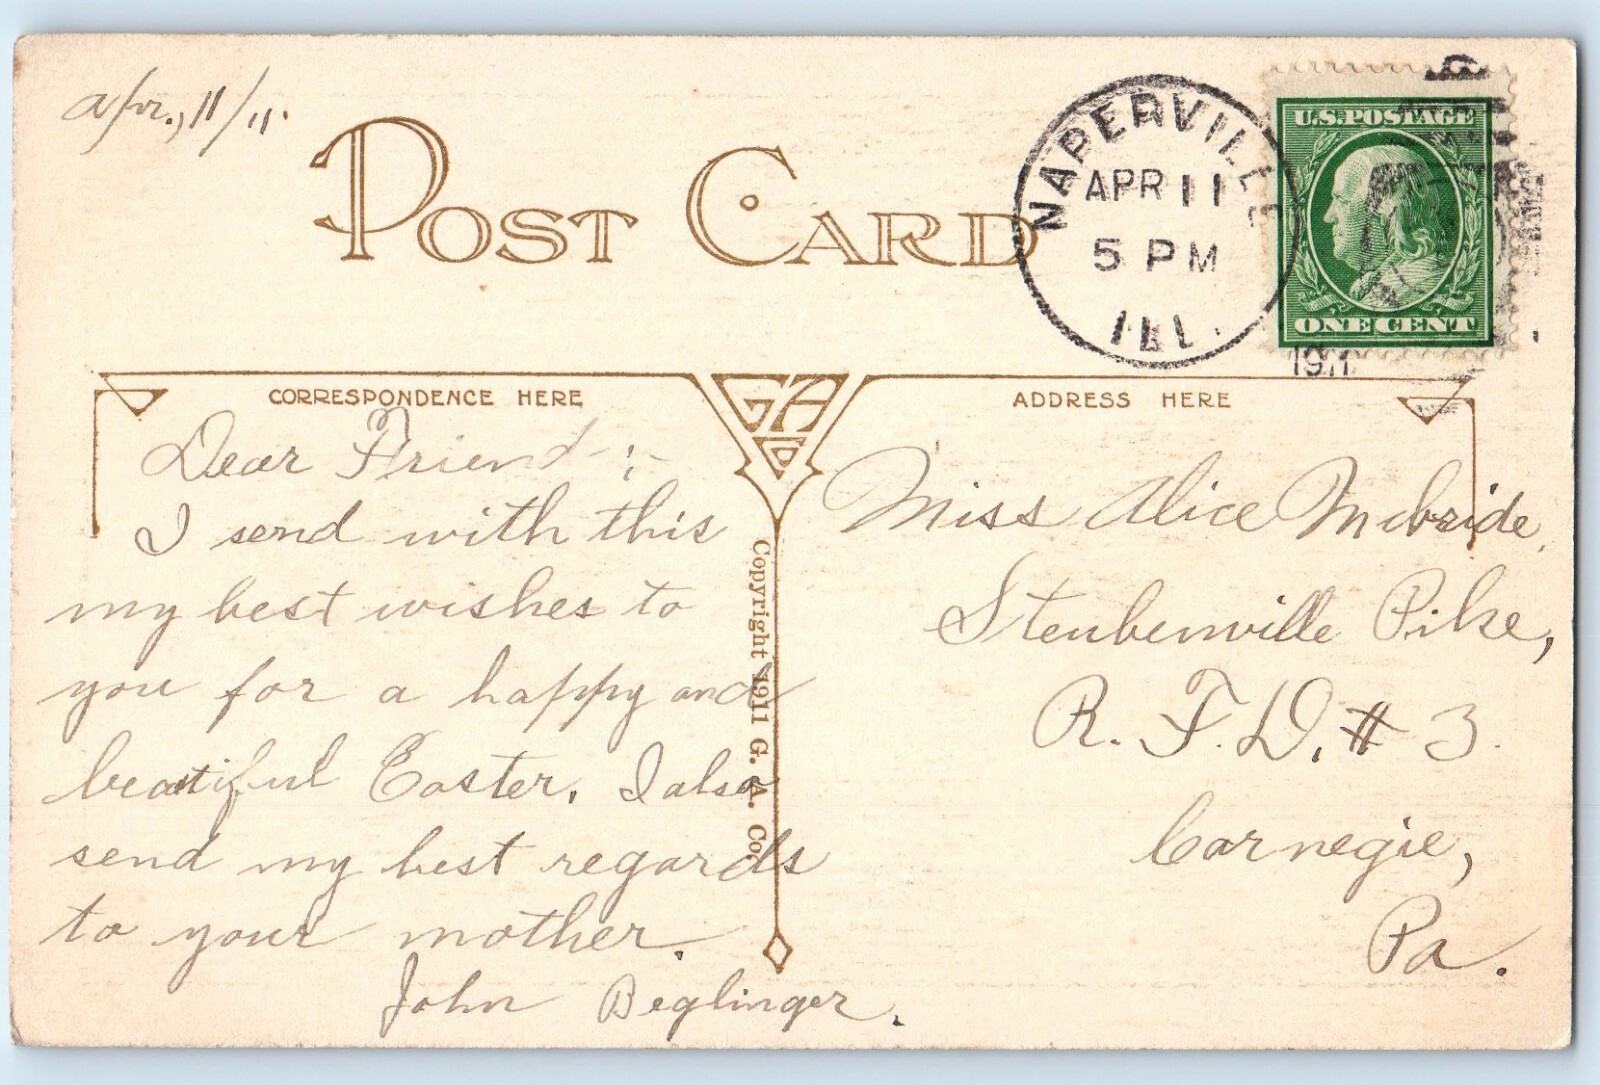 Apr., 11/11.
POST CARD
NAPERVILLE
APR 11
5 PM
ILL.
1911
U.S. POSTAGE
ONE CENT
CORRESPONDENCE HERE
GACo
ADDRESS HERE
Dear Friend-:-
I send with this
my best wishes to
you for a happy and
beautiful Easter. I also
send my best regards
to your mother.
John Beglinger.
Copyright 1911 G. A. Co.
Miss Alice Mcbride,
Steubenville Pike,
R. F. D. # 3.
Carnegie,
Pa.